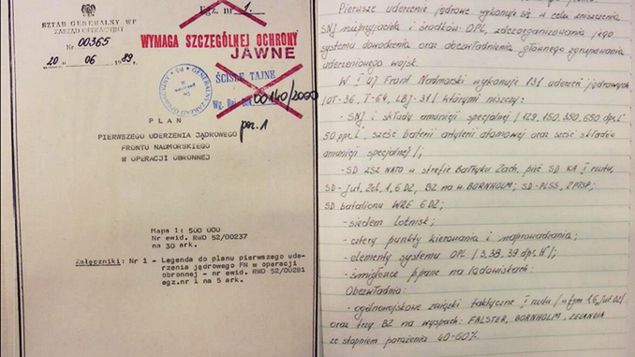 SZTAB GENERALNY WP
ZARZĄD OPERACYJNY
Nr 00365
20 06 1989
Egz. nr 1.
WYMAGA SZCZEGÓLNEJ OCHRONY
JAWNE
ŚCIŚLE TAJNE
00140/2000
poz. 1
PLAN
PIERWSZEGO UDERZENIA JĄDROWEGO
FRONTU NADMORSKIEGO
W OPERACJI OBRONNEJ
Mapa 1: 500 000
Nr ewid. RWD 52/00237
na 30 ark.
Załączniki: Nr 1 - Legenda do planu pierwszego ude-
rzenia jądrowego FN w operacji
obronnej - nr ewid. RWD 52/00281
egz.nr 1 na 5 ark.
Pierwsze uderzenie jądrowe wykonuje się w celu zniszczenia
ŚNJ nieprzyjaciela i środków OPL, zdezorganizowania jego
systemu dowodzenia oraz obezwładnienia głównego zgrupowania
uderzeniowego wojsk.
W I UJ Front Nadmorski wykonuje 131 uderzeń jądrowych
/OT-36, T-64, LBJ-31/ którymi niszczy:
- ŚNJ i składy amunicji specjalnej /129, 150, 350, 650 dpr. L
50 ppr. L, sześć baterii artylerii atomowej oraz sześć składów
amunicji specjalnej/;
- SD ZSZ NATO w strefie Bałtyku Zach, pięć SD KA I rzutu,
SD-Jut. Zel, 1, 6 DZ, BZ na w. BORNHOLM; SD-PLSS, 2 PTSP;
SD batalionu WRE 6 DZ;
- siedem lotnisk;
- cztery punkty kierowania i naprowadzania;
- elementy systemu OPL /3, 38, 39 dpr. H/;
- śmigłowce ppanc na lądowiskach;
Obezwładnia:
- ogólnowojskowe związki taktyczne I rzutu /w tym 1, 6, Jut. DZ/
oraz trzy BZ na wyspach: FALSTER, BORNHOLM, ZELANDIA
ze stopniem porażenia 40-60%.